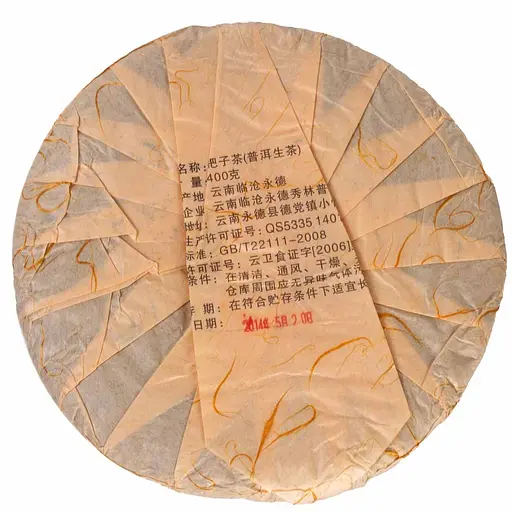 名称:耙子茶(普洱生茶)
量 400克
产地 云南临沧永德
企业 云南临沧永德秀林普
地址: 云南永德县德党镇小
生产许可证号: QS5335 140
标准: GB/T22111-2008
许可证号: 云卫食证字[2006]
条件: 在清洁、通风、干燥、
仓库周围应无异味气体
存 期: 在符合贮存条件下适宜长
日期: 2014年5月20日